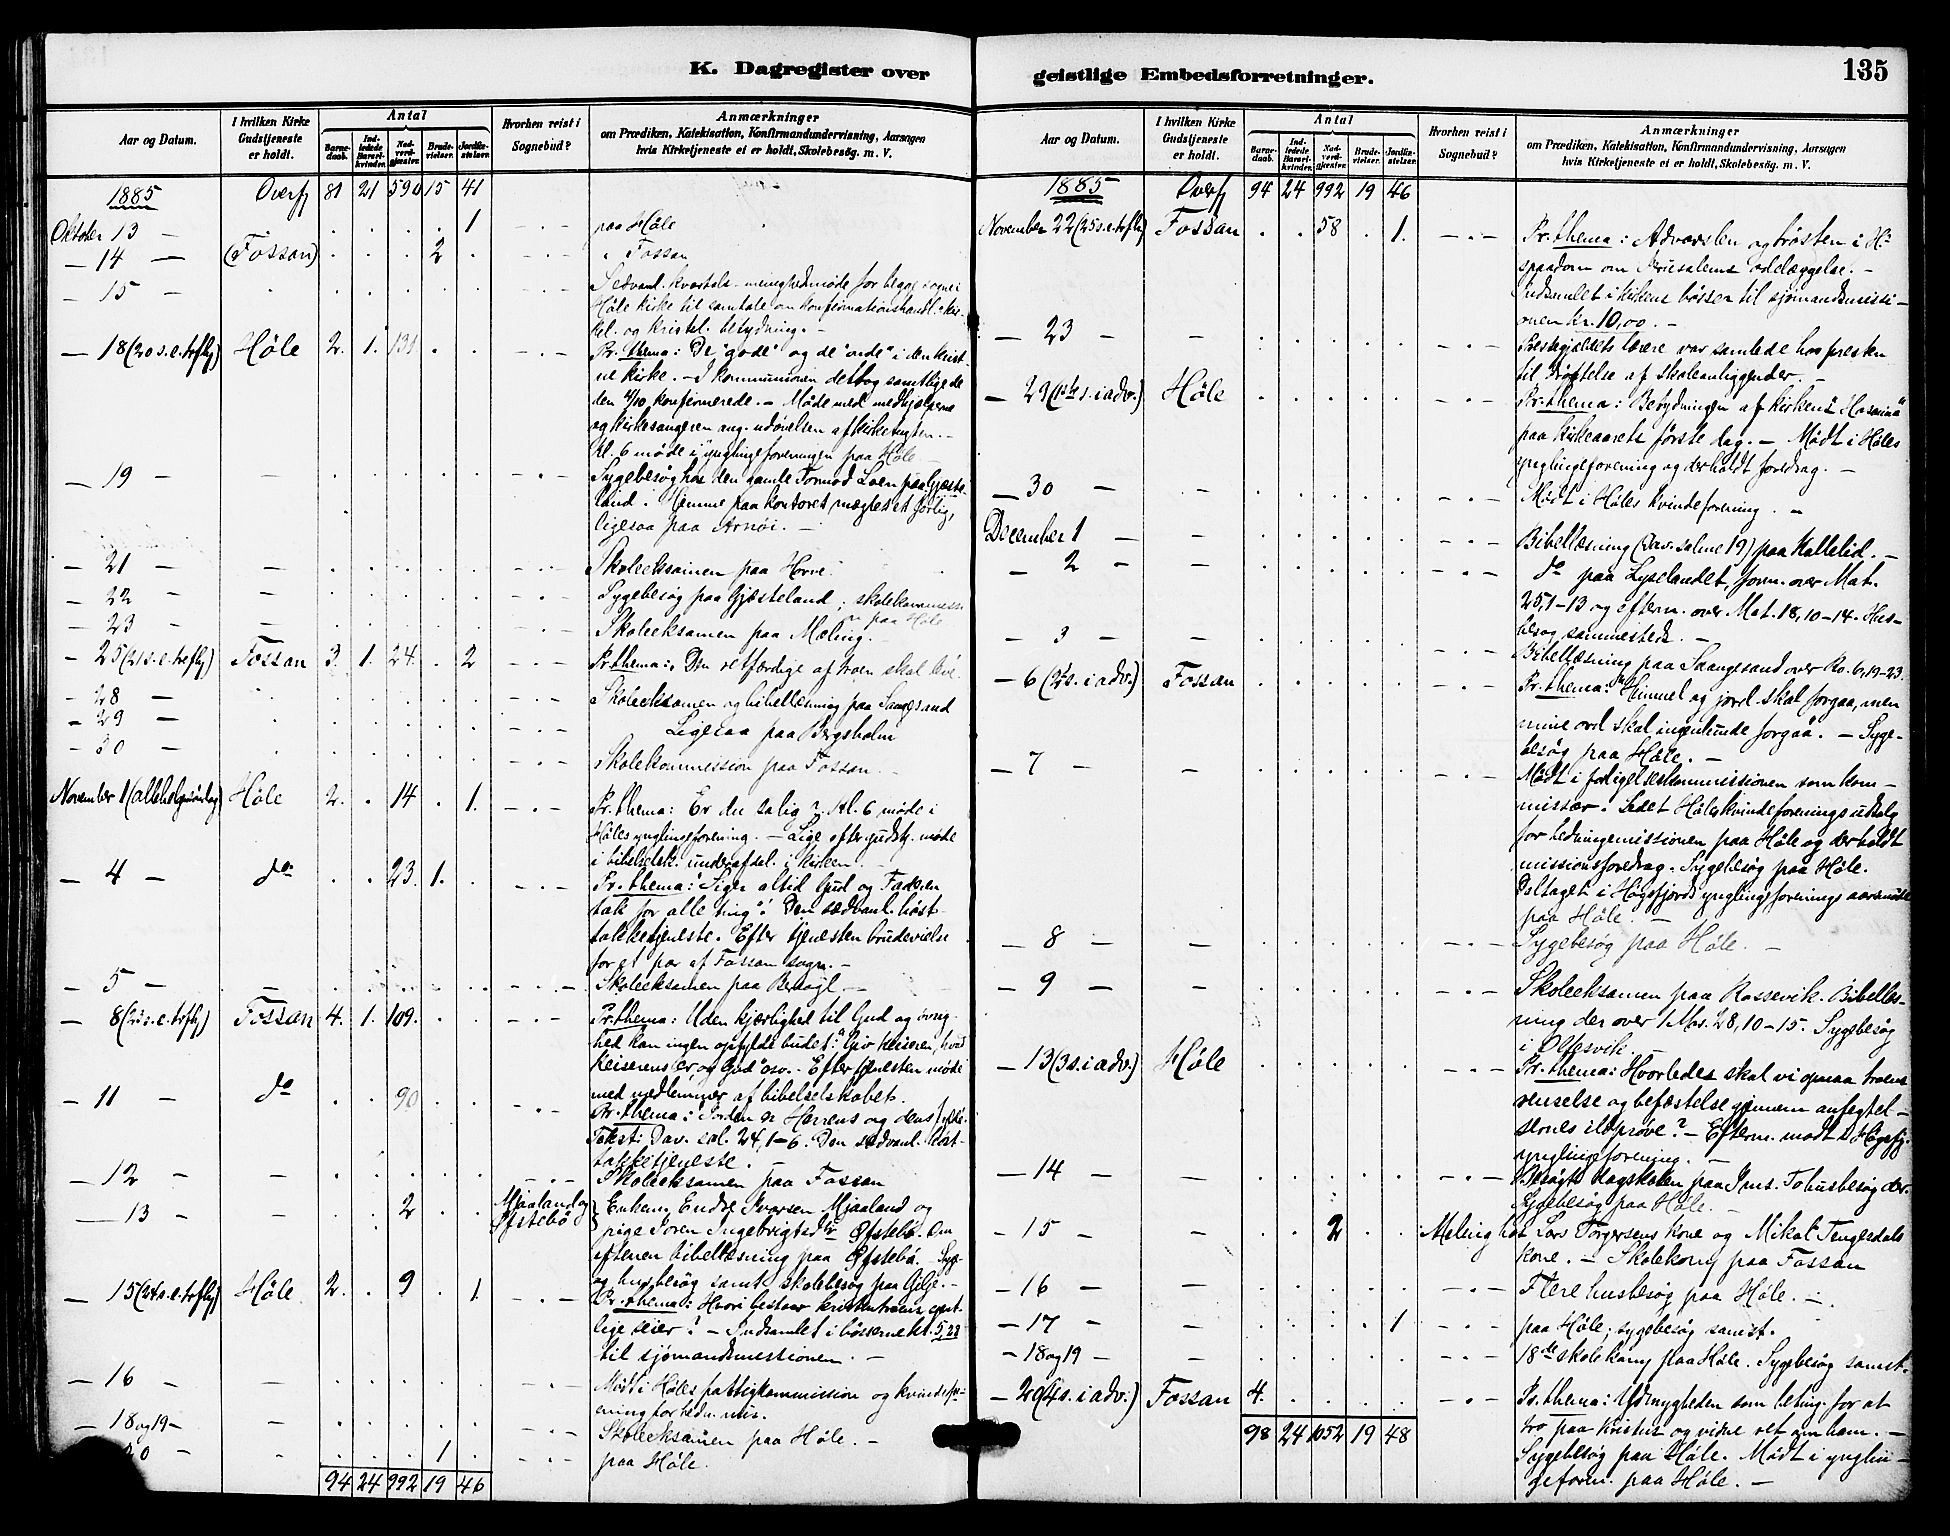 K. Dagregister over
Aar og Datum.
I hvilken Kirke Gudstjeneste er holdt.
Antal
Barnedaab.
Indledede Barselkvinder.
Nadverdgjester.
Brudevielser.
Jordfæstelser.
Hvorhen reist i Sognebud?
Anmærkninger
om Prædiken, Katekisation, Konfirmandundervisning, Aarsagen
hvis Kirketjeneste ei er holdt, Skolebesög. m. V.
1885 Overf 81 21 590 15 41
Oktober 13 — . . . . 1 — . — paa Høle
— 14 — (Fossan) . . . 2 . — . — " Fossan
— 15 — . . . . . — . — Sedvanl. kvartals-menighedsmøde for begge sogne i
Høle kirke til samtale om konfirmationshandl.s kir-
kel. og kristel. betydning. —
— 18 (20 s. e. trefty) Høle 2. 1. 131 . . — . — Pr. thema: De "gode" og de "onde" i den krist-
ne kirke. — I kommunionen deltog samtlige de
den 4/10 konfirmerede. — Møde med medhjelperne
og kirkesangeren ang. udøvelsen af kirketugten. —
Kl. 6 møde i ynglingeforeningen paa Høle
— 19 — — . . . . . — . — Sygebesøg hos den gamle Tormod Loen paa Gjeste-
land. Hjemme paa kontoret mægtet et forlig,
ligesaa paa Arnøi. —
— 21 — — . . . . . — . — Skoleeksamen paa Hovve.
— 22 — — . . . . . — . — Sygebesøg paa Gjesteland; skolekommissi-
on paa Høle
— 23 — — . . . . . — . — Skoleeksamen paa Mæling.
— 25 (21 s. e. trefty) Fossan 3. 1. 24. . 2 — . — Pr. thema: Den retfærdige af troen skal leve.
— 28 — . . . . . — . — Skoleeksamen og bibellæsning paa Saugesand
— 29 — . . . . . — . — Ligesaa paa Bergsholm
— 30 — . . . . . — . — Skolekommission paa Fossan. —
November 1 (allehelgensdag) Høle 2. . 14 . 1. — . — Pr. thema: Er du salig? Kl. 6 møde i
Høles ynglingeforening. — Lige efter gudstj. møde
i bibelselsk. underafdel. i kirken. —
— 4 — do . . 23. 1. . — . — Pr. thema: Siger altid Gud og Faderen
tak for alle ting! Den sædvanl. høst-
takketjeneste. Efter tjenesten brudevielse
for et par af Fossan sogn. —
— 5 — — . . . . . — . — Skoleeksamen paa Bersagel —
— 8 (23 s. e. trefty) Fossan 4. 1. 109. . . — . — Pr. thema: Uden kjærlighed til Gud og øvrig-
hed kan ingen opfylde budet: "Giv keiseren, hvad
keiserens er og Gud" osv. — Efter tjenesten møde
med medlemmer af bibelselskabet.
— 11 — do 90 — . — Pr. thema: "Jorden er Herrens og dens fylde."
Tekst: Dav. sal. 24, 1–6. Den sædvanl. høst-
takketjeneste. —
— 12 — . . . . . — . — Skoleeksamen paa Fossan
— 13 — . . 2 . . Mjaaland og Øfstebø Enkem. Endre Iversen Mjaaland og
pige Søren Ingebrigtsdtr Øfstebø. Om
eftenen bibellæsning paa Øfstebø. Syge-
og husbesøg samt skolebesøg paa Gilje. —
— 15 (24 s. e. trefty) Høle 2. . 9 . 1. — . — Pr. thema: Hvori bestaar kristentroens egent-
lige seier? — Indsamlet i bøsserne kr. 5,28
til sjømandsmissionen. —
— 16 — — . . . . . — . — Mødt i Høles fattigkommission og kvindefor-
ening for hedn. mis.
— 18 og 19 — — . . . . . Skoleeksamen paa Høle. —
20 — . . . 1 . — . — paa Høle.
94 24 992 19 46
geistlige Embedsforretninger.
135
Aar og Datum.
I hvilken Kirke Gudstjeneste er holdt.
Antal
Barnedaab.
Indledede Barselkvinder.
Nadverdgjester.
Brudevielser.
Jordfæstelser.
Hvorhen reist i Sognebud?
Anmærkninger
om Prædiken, Katekisation, Konfirmandundervisning, Aarsagen
hvis Kirketjeneste ei er holdt, Skolebesög. m. V.
1885 Overf 94 24 992 19 46
November 22 (25 s. e. trefty) Fossan . . 58 . 1. — . — Pr. thema: Advarslen og trøsten i H:
spaadom om Jerusalems ødelæggelse. —
Indsamlet i kirkens bøsser til sjømandsmissi-
onen kr. 10,00. —
— 23 — — . . . . . — . — Prestegjældets lærere var samlede hos presten
til drøftelse af skoleanliggender. —
— 29 (1ste s. i adv.) Høle . . . . . — . — Pr. thema: Betydningen af kirkens "Hosianna"
paa kirkeaarets første dag. — Mødt i Høles
ynglingeforening og der holdt foredrag. —
— 30 — — . . . . . — . — Mødt i Høles kvindeforening. —
December 1 — . . . . . — . — Bibellæsning (Dav. salme 19) paa Kallelid. —
— 2 — — . . . . . — . — do paa Lyselandet, form. over Mat.
25, 1–13 og efterm. over Mat. 18, 10–14. Hus-
besøg sammesteds. —
— 3 — — . . . . . — . — Bibellæsning paa Saangesand over Ro. 6, 19–23.
— 6 (2. s. i adv.) Fossan . . . . . — . — Pr. thema: "Himmel og jord skal forgaa, men
mine ord skal ingenlunde forgaa. — Syge-
besøg paa Høle. —
— 7 — — . . . . . — . — Mødt i forligelseskommissionen som kom-
missær. Ledet Høles kvindeforenings udsalg
for hedningemissionen paa Høle og der holdt
missionsforedrag. Sygebesøg paa Høle.
Deltaget i Høgsfjords ynglingeforenings aarsmøde
paa Høle. —
— 8 — — . . . . . — . — Sygebesøg paa Høle. —
— 9 — — . . . . . — . — Skoleeksamen paa Rossevik. Bibellæs-
ning der over 1 Mos. 28, 10–15. Sygebesøg
i Oltesvik. —
— 13 (3 s. i adv.) Høle . . . . . — . — Pr. thema: Hvorledes skal vi opnaa troens
renselse og befæstelse gjennem anfegtel-
sernes ildprøve? — Efterm. mødt i Høgsfj.
ynglingeforening. —
— 14 — — . . . . . — . — Besøgt dagskolen paa Ims. To husbesøg der.
Sygebesøg paa Høle. —
— 15 — — . . 2 . . Meling hos Lars Torgersens kone og Mikal Tengesdals
kone. — Skolekomy paa Fossan
— 16 — — . . . . . — . — Flere husbesøg paa Høle. —
— 17 — — . . . . 1 — . — paa Høle; sygebesøg samst.
— 18 og 19 — — . . . . . — . — 18de skolekomy paa Høle. Sygebesøg samst.
— 20 (4 s. i adv.) Fossan 4. . . . . — . — Pr. thema: Ydmygheden som beting. for at
tro paa Kristus og vidne ret om ham. —
Sygebesøg paa Høle. Mødt i ynglin-
geforen. paa Høle. —
98 24 1052 19 48